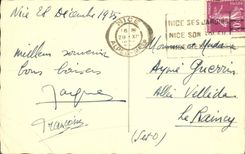 Nice 28 Décembre 1935
NICE
NICE SES JARDINS
NICE SON
Meilleurs souvenirs
bons baisers
Jacques
Françoise
Monsieur et Madame
Aymé Guerrin
Allée Villida
Le Raincy
(S et O)